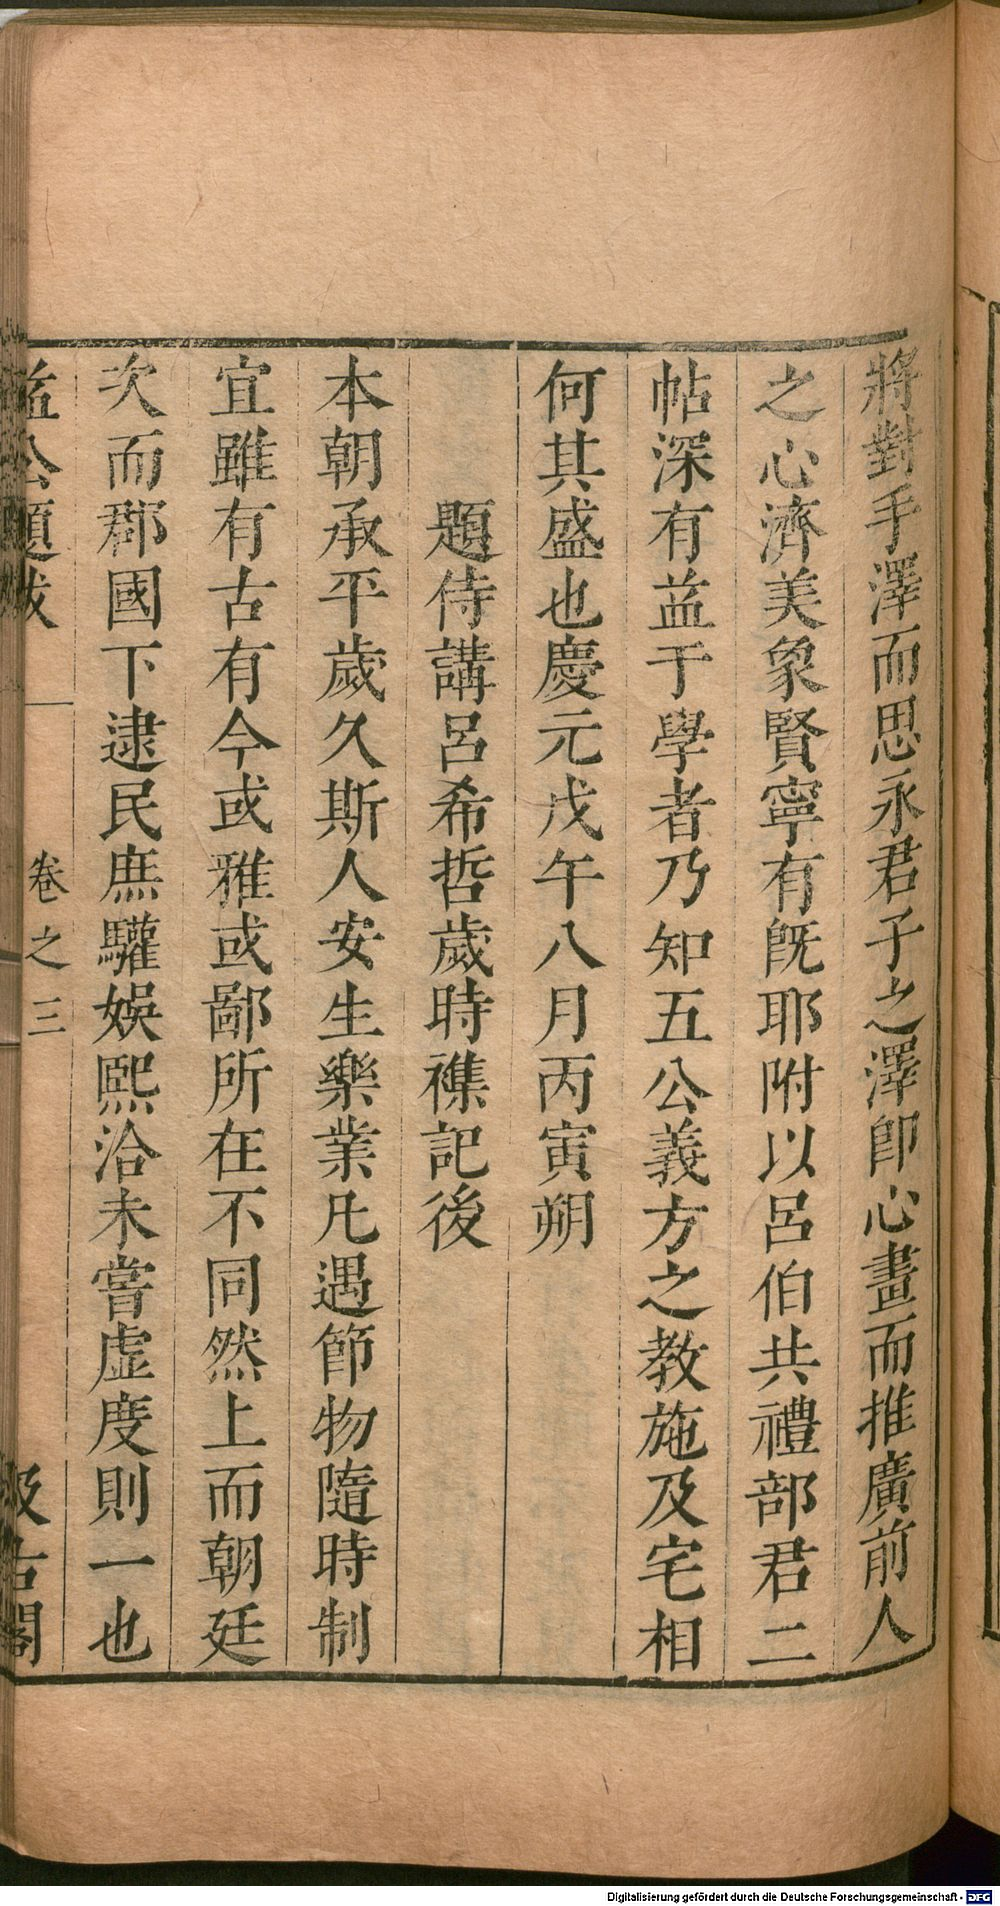 將對手澤而思永君子之澤卽心畫而推廣前人
之心濟美象賢寧有旣耶附以呂伯共禮部君二
帖深有益于學者乃知五公義方之教施及宅相
何其盛也慶元戊午八月丙寅朔
題侍講呂希哲歲時襍記後
本朝承平歲久斯人安生樂業凡遇節物隨時制
宜雖有古有今或雅或鄙所在不同然上而朝廷
次而郡國下逮民庶驩娛熙洽未嘗虛度則一也
益公題跋 卷之三 汲古閣
Digitalisierung gefördert durch die Deutsche Forschungsgemeinschaft - DFG